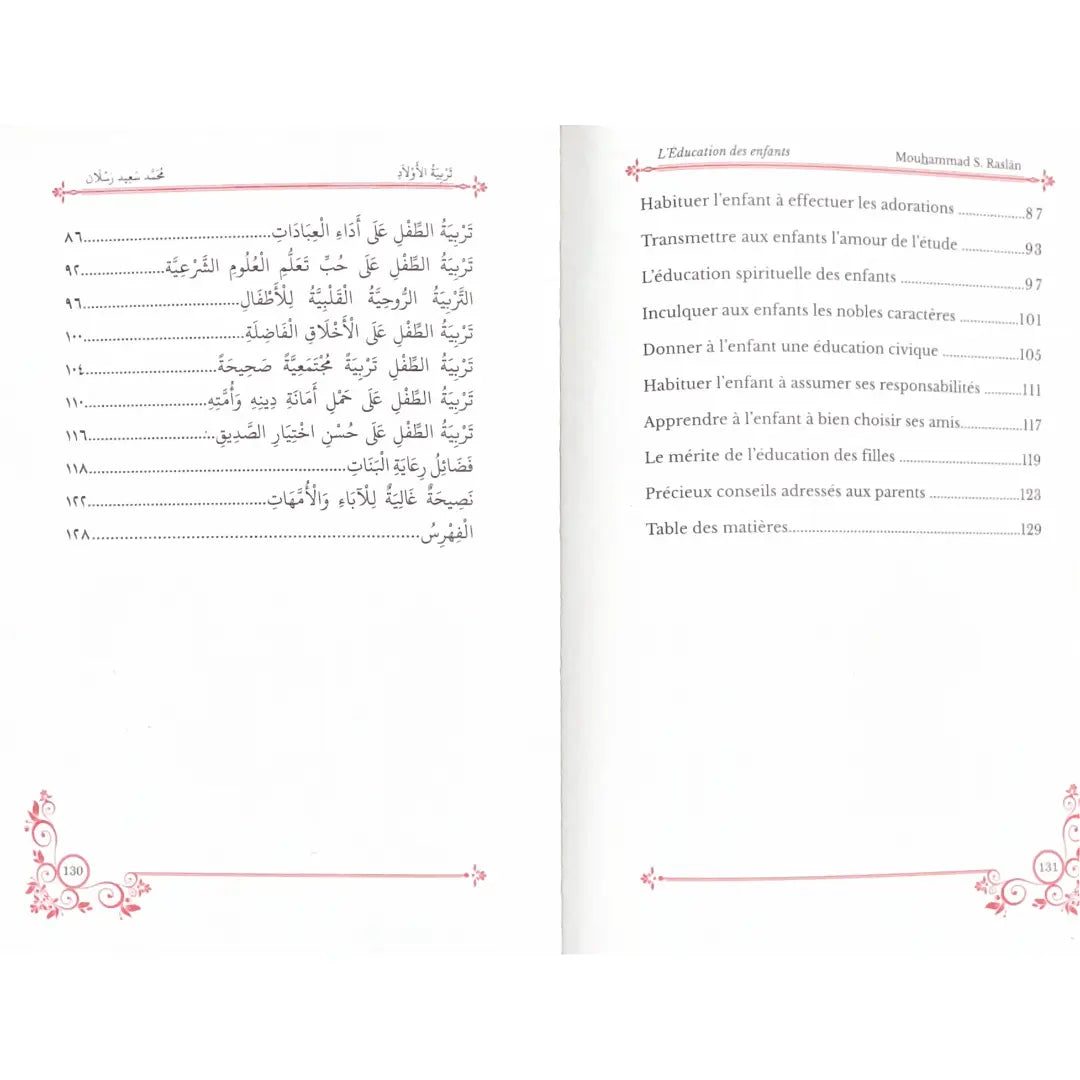 تَرْبِيَةُ الأَوْلَادِ مُحَمَّد سَعِيد رَسْلَان
تَرْبِيَةُ الطِّفْلِ عَلَى أَدَاءِ الْعِبَادَاتِ..............................٨٦
تَرْبِيَةُ الطِّفْلِ عَلَى حُبِّ تَعَلُّمِ الْعُلُومِ الشَّرْعِيَّةِ..............٩٢
التَّرْبِيَةُ الرُّوحِيَّةُ الْقَلْبِيَّةُ لِلْأَطْفَالِ..........................٩٦
تَرْبِيَةُ الطِّفْلِ عَلَى الْأَخْلَاقِ الْفَاضِلَةِ..........................١٠٠
تَرْبِيَةُ الطِّفْلِ تَرْبِيَةً مُجْتَمَعِيَّةً صَحِيحَةً......................١٠٤
تَرْبِيَةُ الطِّفْلِ عَلَى حَمْلِ أَمَانَةِ دِينِهِ وَأُمَّتِهِ....................١١٠
تَرْبِيَةُ الطِّفْلِ عَلَى حُسْنِ اخْتِيَارِ الصَّدِيقِ....................١١٦
فَضَائِلُ رِعَايَةِ الْبَنَاتِ............................................١١٨
نَصِيحَةٌ غَالِيَةٌ لِلْآبَاءِ وَالْأُمَّهَاتِ..............................١٢٢
الْفِهْرِسُ........................................................١٢٨
130
L'Éducation des enfants Mouhammad S. Raslān
Habituer l'enfant à effectuer les adorations ..................87
Transmettre aux enfants l'amour de l'étude ..................93
L'éducation spirituelle des enfants ..............................97
Inculquer aux enfants les nobles caractères ................101
Donner à l'enfant une éducation civique .....................105
Habituer l'enfant à assumer ses responsabilités ..........111
Apprendre à l'enfant à bien choisir ses amis.................117
Le mérite de l'éducation des filles ..............................119
Précieux conseils adressés aux parents ........................123
Table des matières..........................................................129
131